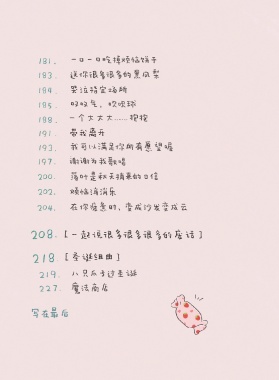 181. 一口一口吃掉烦恼饼干
183. 送你很多很多的黑凤梨
184. 哭泣特定场所
185. 呼呼气,吹吹球
188. 一个大大大……抱抱
191. 带我离开
193. 我可以满足你的所有愿望喔
197. 谢谢为我歌唱
200. 落叶是秋天摘来的口信
202. 烦恼消消乐
204. 在你疲惫的,变成沙发变成云
208. [一起说很多很多很多的废话]
218. [圣诞组曲]
219. 八只爪子过圣诞
227. 魔法商店
写在最后